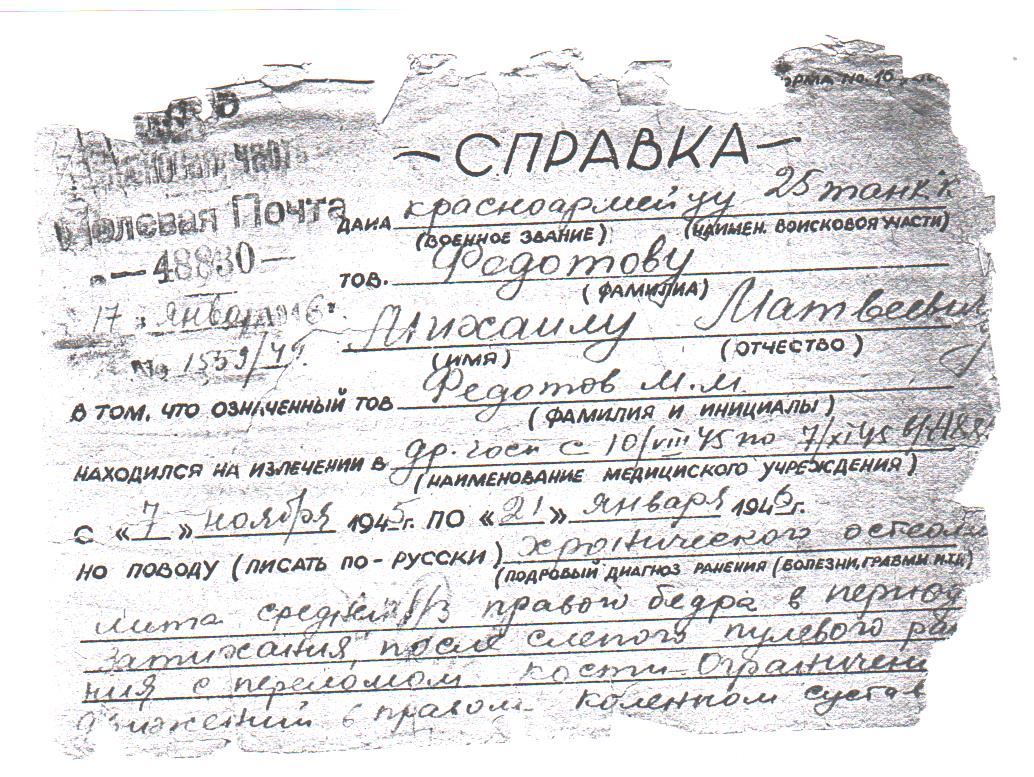 ФОРМА No 10
СПРАВКА
Полевая Почта
48830
17 января 1946 г.
No 1559/45
ДАНА красноармейцу 25 танк к
(ВОЕННОЕ ЗВАНИЕ) (НАИМЕН. ВОИСКОВОЯ ЧАСТИ)
ТОВ. Федотову
(ФАМИЛИА)
Михаилу Матвеевич
(ИМЯ) (ОТЧЕСТВО)
В ТОМ, ЧТО ОЗНАЧЕННЫЙ ТОВ Федотов М.М.
(ФАМИЛИЯ И ИНИЦИАЛЫ)
НАХОДИЛСЯ НА ИЗЛЕЧЕНИИ В др. госп с 10/VIII 45 по 7/XI 45
(НАИМЕНОВАНИЕ МЕДИЦИСКОГО УЧРЕЖДЕНИЯ)
С «7» ноября 1945 г. ПО «21» января 1946 г.
НО ПОВОДУ (ПИСАТЬ ПО-РУССКИ) хронического остеоми
(ПОДРОВЫЙ ДИАГНОЗ РАНЕНИЯ (БОЛЕЗНИ, ГРАВМЫ И.Т.Д)
лита средней 1/3 правого бедра в период
затихания, после слепого пулевого ра
ния с переломом кости. Ограничени
движений в правом коленном сустав